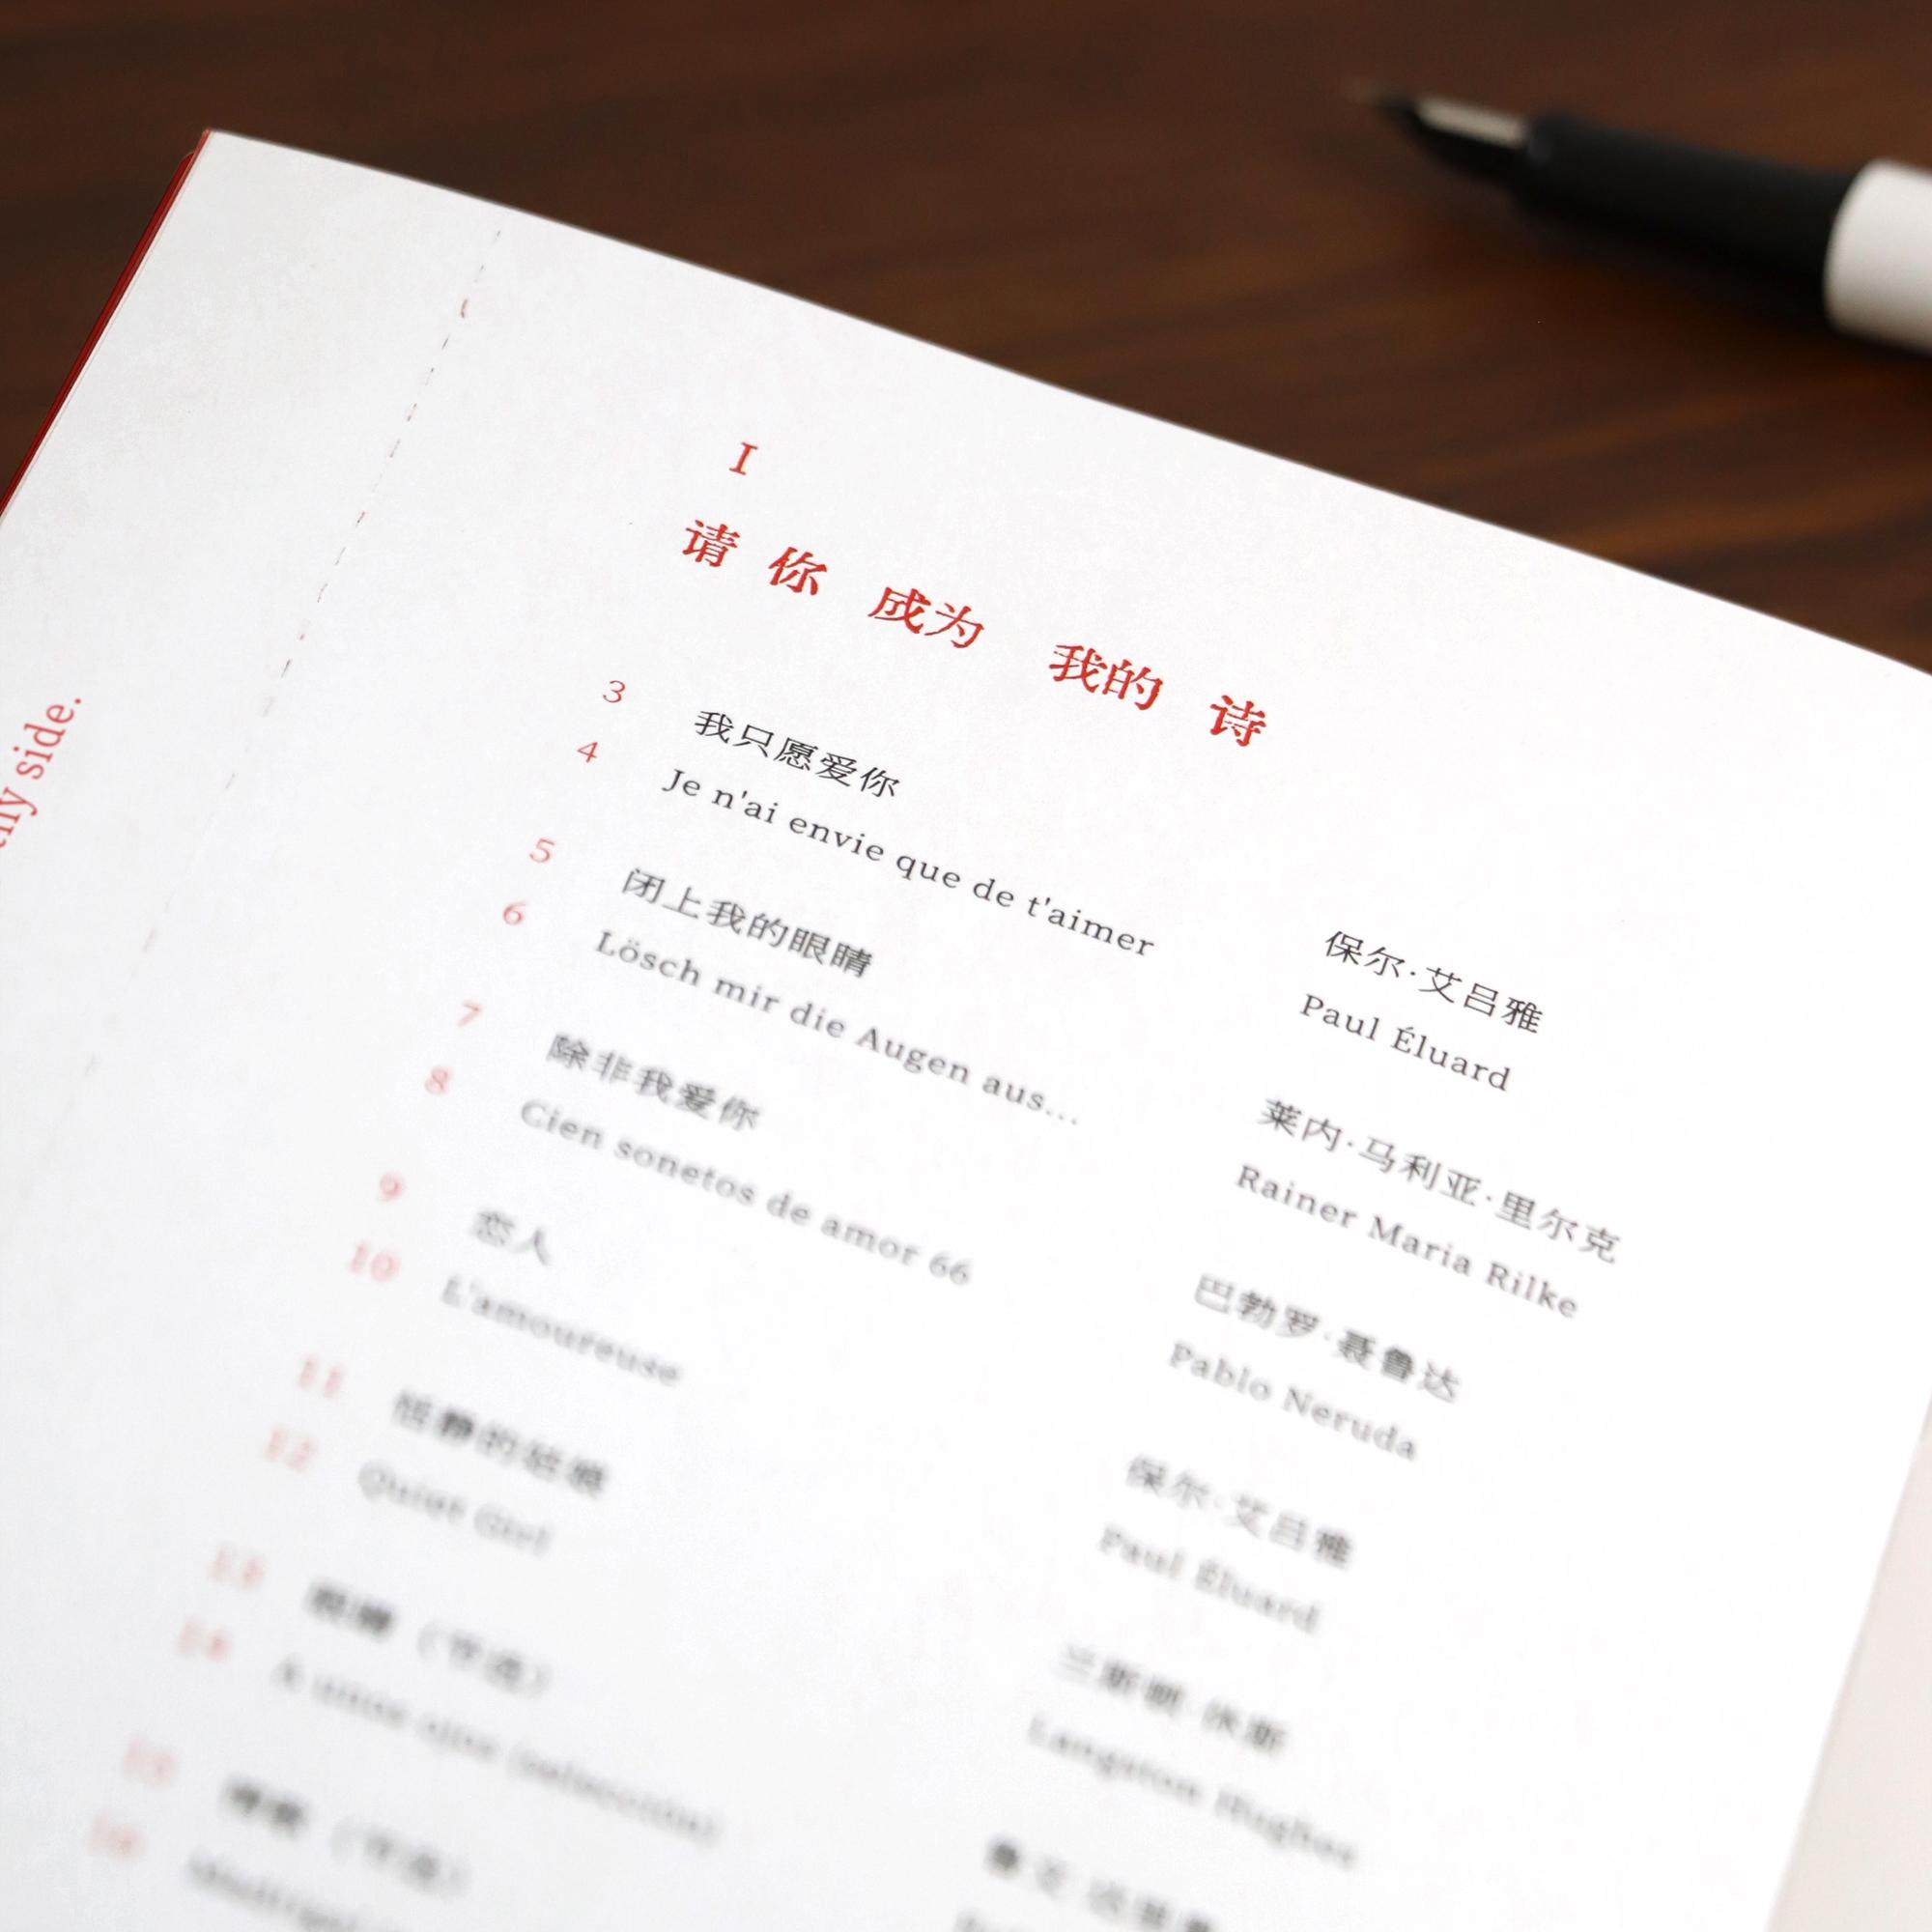 side.
I
请你 成为 我的 诗
3 我只愿爱你
4 Je n'ai envie que de t'aimer
保尔·艾吕雅
Paul Éluard
5 闭上我的眼睛
6 Lösch mir die Augen aus...
莱内·马利亚·里尔克
Rainer Maria Rilke
7 除非我爱你
8 Cien sonetos de amor 66
巴勃罗·聂鲁达
Pablo Neruda
9 恋人
10 L'amoureuse
保尔·艾吕雅
Paul Éluard
11 恬静的姑娘
12 Quiet Girl
兰斯顿·休斯
Langston Hughes
13 眼睛（节选）
14 A unos ojos (selección)
15
16